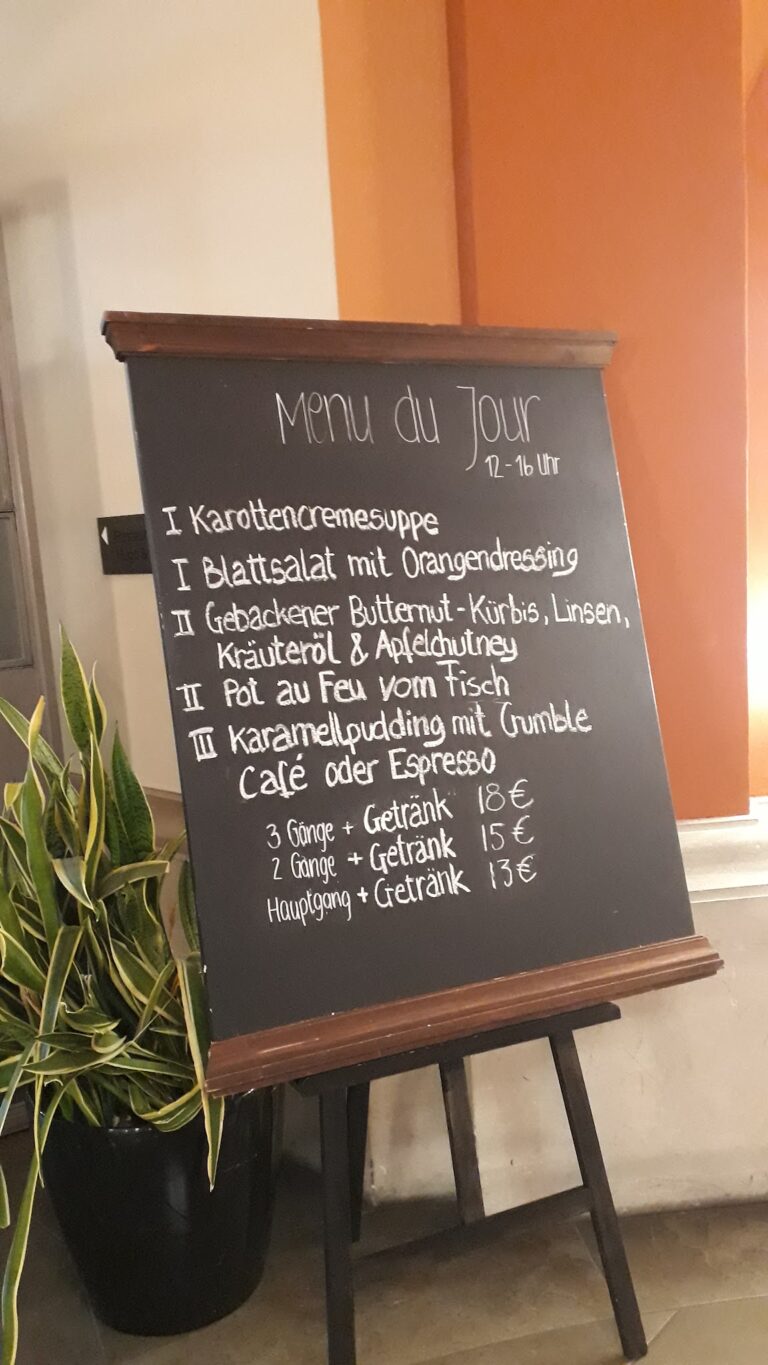 Menu du Jour
12-16 Uhr
I Karottencremesuppe
I Blattsalat mit Orangendressing
II Gebackener Butternut-Kürbis, Linsen,
Kräuteröl & Apfelchutney
II Pot au Feu vom Fisch
III Karamellpudding mit Crumble
Café oder Espresso
3 Gänge + Getränk 18€
2 Gänge + Getränk 15€
Hauptgang + Getränk 13€